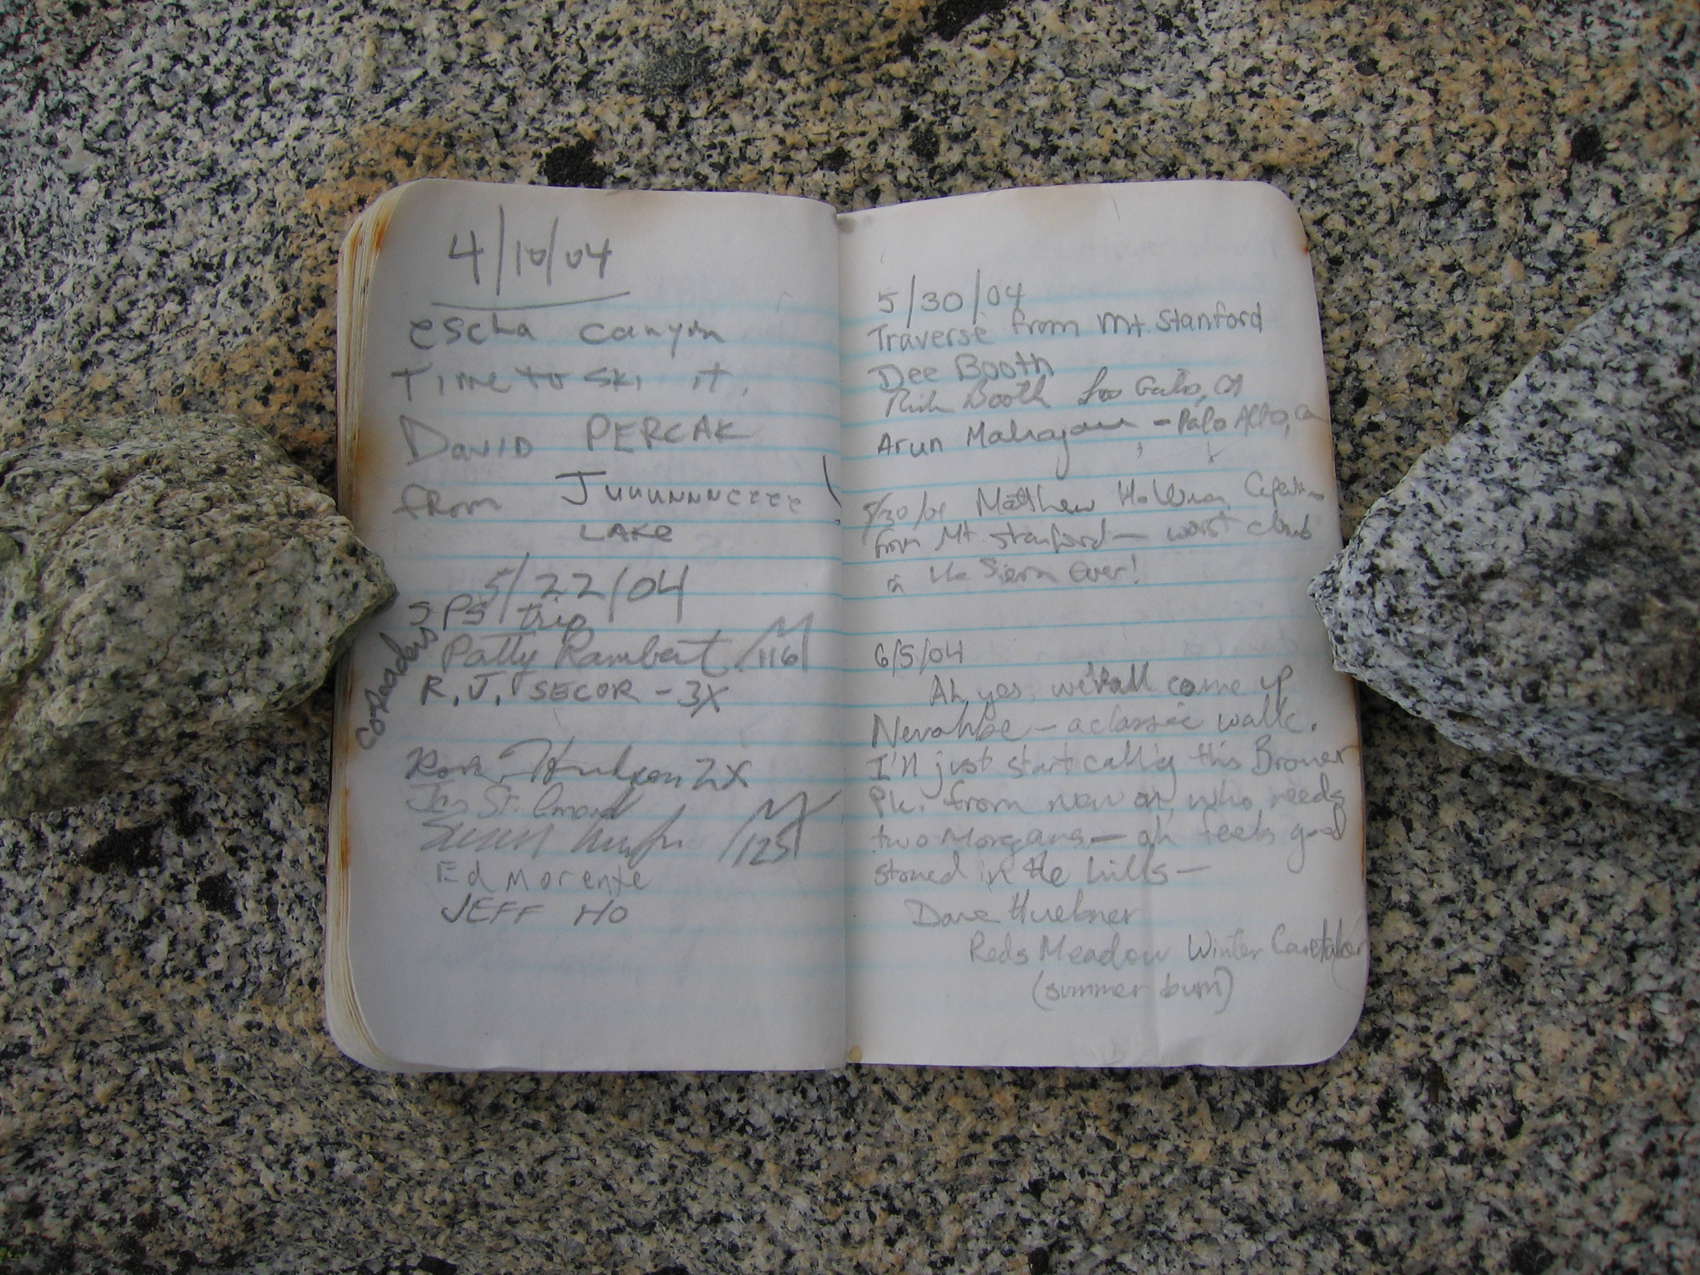 4/10/04
escha canyon
Time to ski it.
DAVID PERCAK
from Juuunnneeee!
LAKE
5/22/04
SPS trip
Co-Leaders
Patty Rambert M/116
R.J. SECOR - 3X
2X
M/125
Ed Morente
JEFF HO
5/30/04
Traverse from Mt. Stanford
Dee Booth
Rich Booth Los Gatos, CA
Arun Mahajan - Palo Alto, Ca
5/30/04 Matthew
from Mt. Stanford - worst climb
in the Sierra Ever!
6/5/04
Ah yes, we all come up
Nevahbe - a classic walk.
I'll just start call'g this Broner
Pk. from now on, who needs
two Morgans - ah feels good
stoned in the hills -
Dave Huebner
Reds Meadow Winter Caretaker
(summer bum)